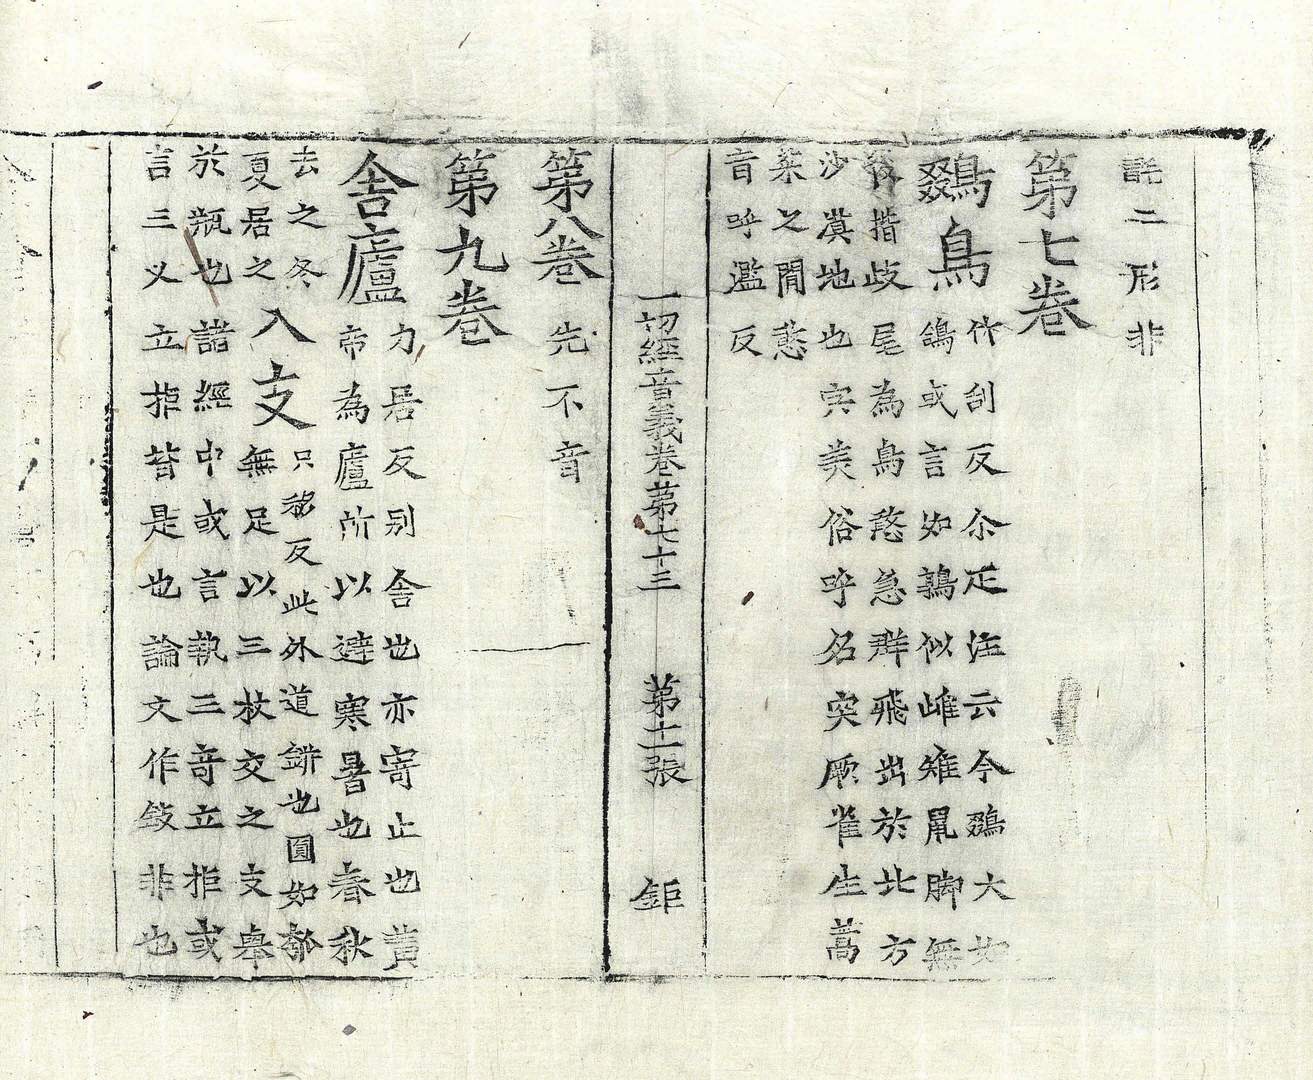 詫二形非
第七卷
鵽鳥
竹刮反尒疋注云今鵽大如
鴿或言如鶉似雌雉鼠脚無
後指歧尾為鳥憨急群飛出於北方
沙漠地也肉美俗呼名突厥雀生蒿
萊之間憨
音呼濫反
一切經音義卷第七十三 第十一張 鉅
第八卷 先不音
第九卷
舍廬
力居反別舍也亦寄止也黃
帝為廬所以避寒暑也春秋
去之冬
夏居之
入支
只移反此外道缾也圓如瓠
無足以三杖交之支舉
於瓶也諸經中或言執三奇立拒或
言三叉立拒皆是也論文作䇿非也